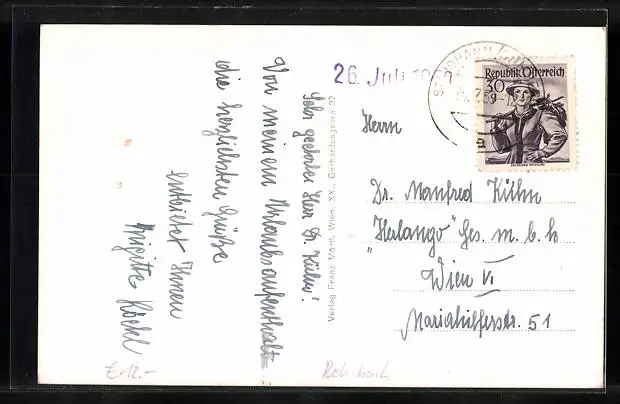 Sehr geehrter Herr D. Kühn!
Von meinem Urlaubsaufenthalt
die herzlichsten Grüße
entbietet Ihnen
Brigitte
€ 12.-
Verlag Franz Mörtl, Wien, XX., Gerhardusgasse 27
26. Juli 1959
ST. JOHANN
Republik Österreich
30
Herrn
Dr. Manfred Kühn
"Halango" Ges. m. b. h
Wien VI
Mariahilferstr. 51